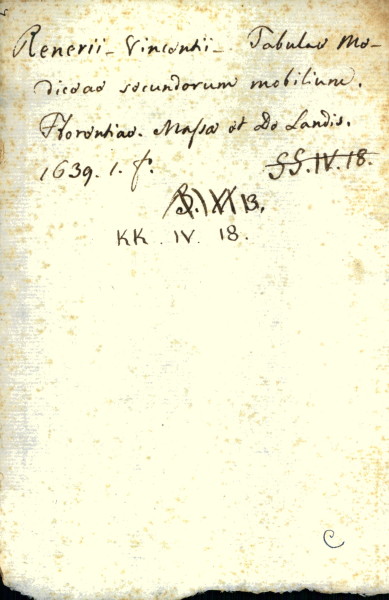 Renerii - Vincentii - Tabulae Me-
diceae secundorum mobilium.
Florentiae. Massae et De Landis.
1639. 1. f. SS. IV. 18.
13.
KK. IV. 18.
C